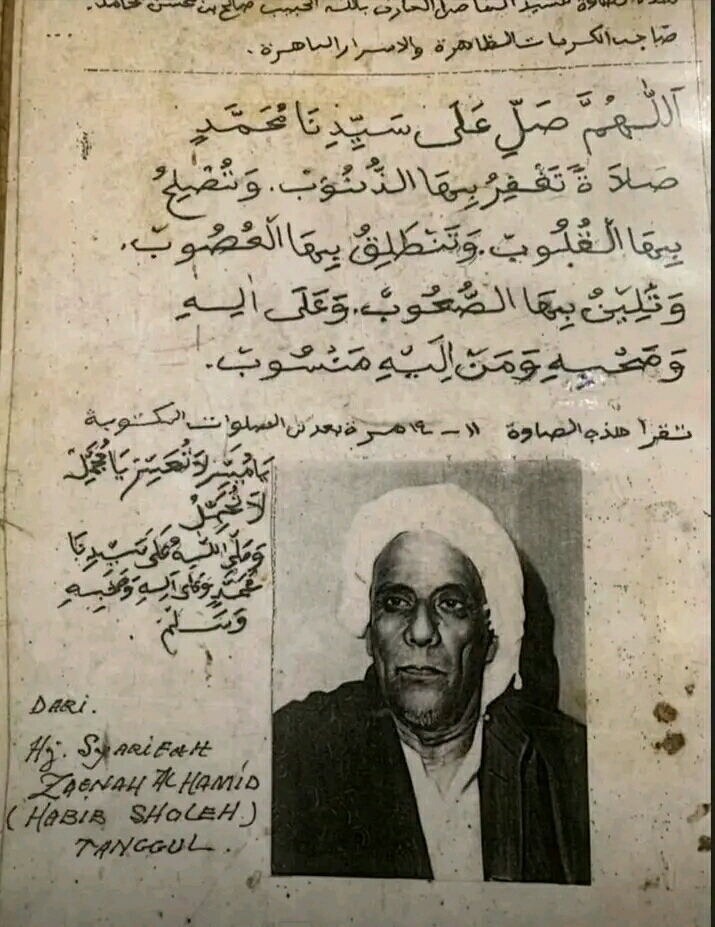 الحبيب صالح بن محسن الحامد.
صاحب الكرمات الظاهرة والاسرار الباهرة.
اَللّٰهُمَّ صَلِّ عَلَى سَيِّدِنَا مُحَمَّدٍ
صَلَاةً تَغْفِرُ بِهَا الذُّنُوْبَ. وَتُصْلِحُ
بِهَا الْقُلُوْبَ. وَتَنْطَلِقُ بِهَا الْعُصُوْبَ.
وَتَلِيْنُ بِهَا الصُّعُوْبَ. وَعَلَى اٰلِهِ
وَصَحْبِهِ وَمَنْ اِلَيْهِ مَنْسُوْبَ.
تقرأ هذه الصاوة ١١ - مرة بعد كل الصلوات المكتوبة
يَا مُيَسِّرُ لَا تُعَسِّرْ يَا
لَا
وَصَلَّى اللّٰهُ عَلَى سَيِّدِنَا
مُحَمَّدٍ وَعَلَى اٰلِهِ وَصَحْبِهِ
وَسَلَّمَ
DARI.
Hj. SYARIFAH
ZAENAH AL HAMID
(HABIB SHOLEH)
TANGGUL.